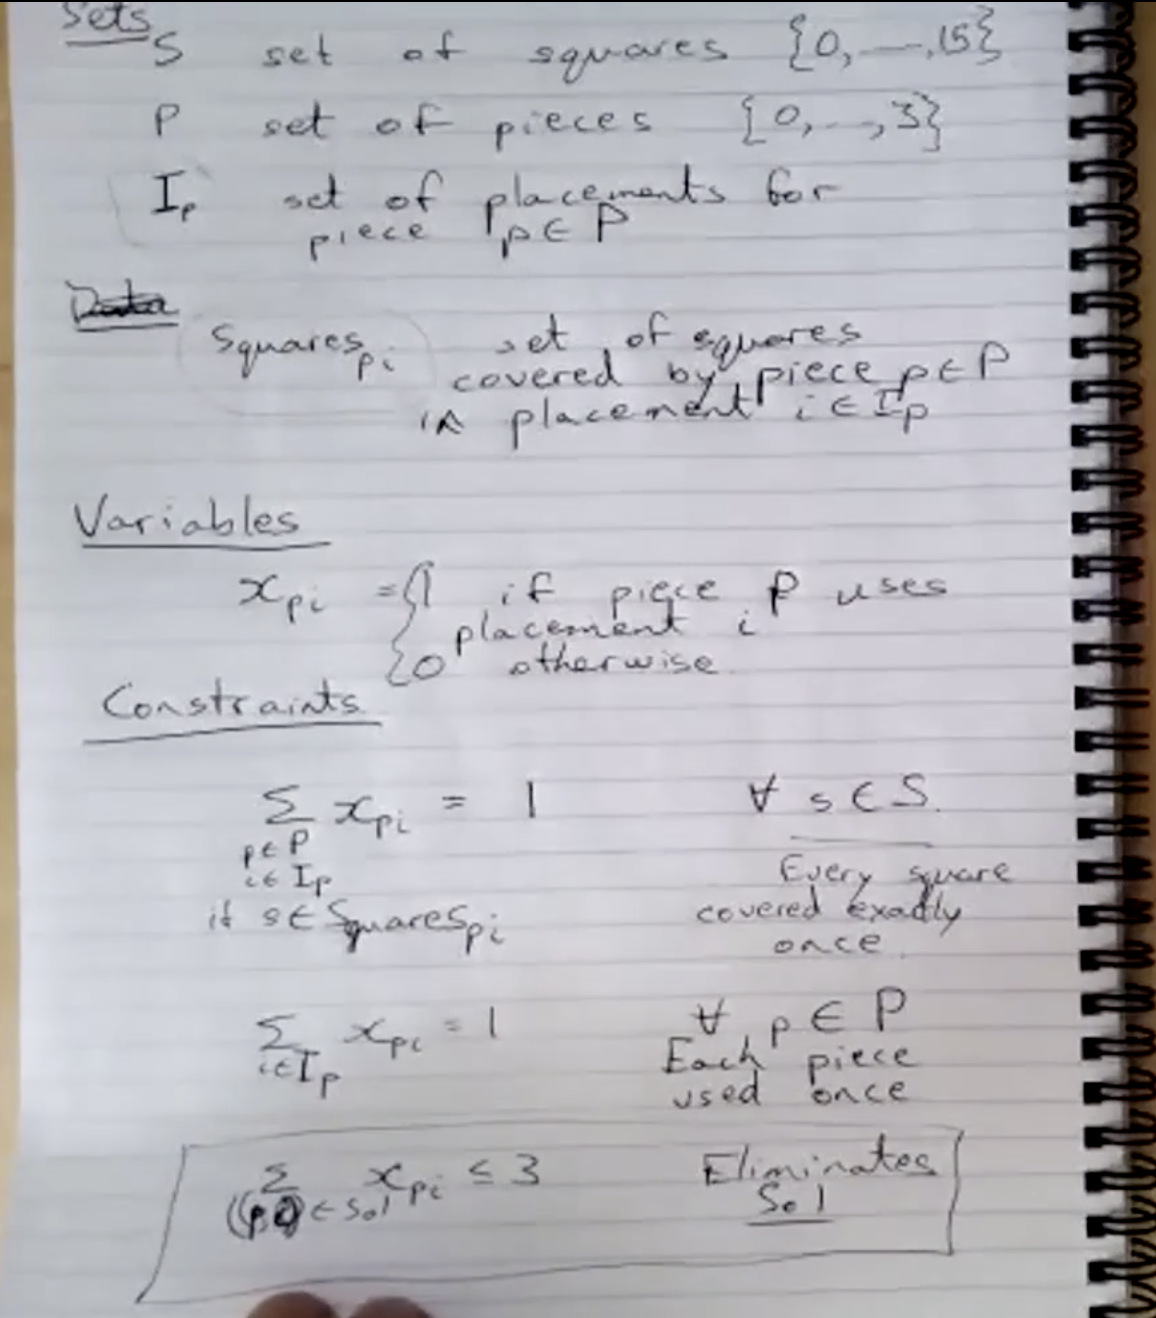 Sets
S set of squares {0, —, 15}
P set of pieces {0, --, 3}
I_p set of placements for
piece p ∈ P
Data
Squares_pi set of squares
covered by piece p ∈ P
in placement i ∈ I_p
Variables
x_pi = { 1 if piece p uses
placement i
0 otherwise
Constraints
Σ x_pi = 1 ∀ s ∈ S.
p ∈ P
i ∈ I_p Every square
if s ∈ Squares_pi covered exactly
once.
Σ x_pi = 1 ∀ p ∈ P
i ∈ I_p Each piece
used once
Σ x_pi ≤ 3 Eliminates
(p i) ∈ Sol Sol